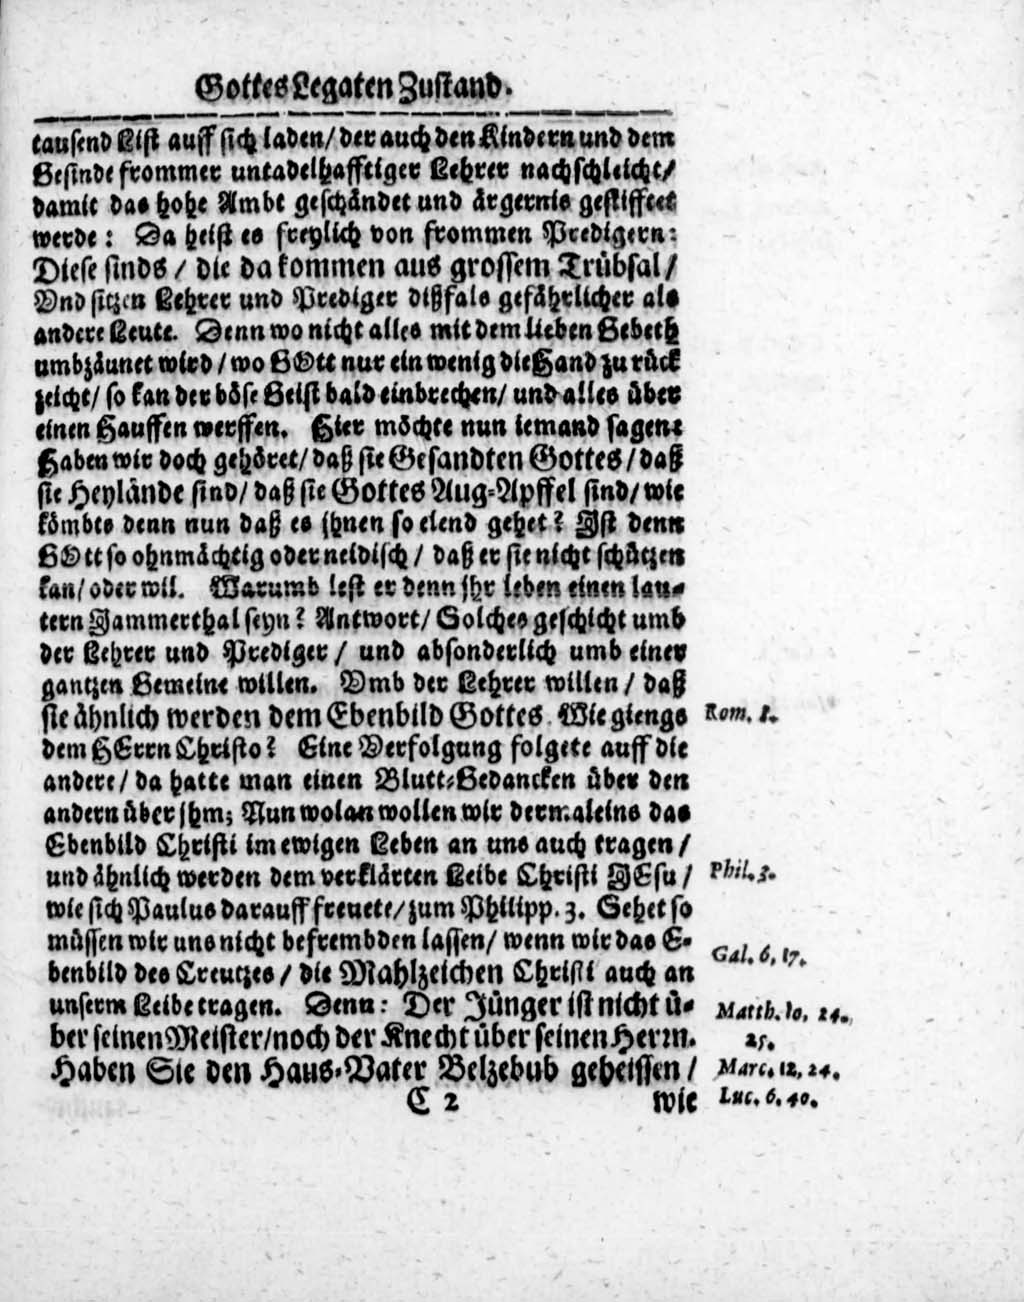 Gottes Legaten Zustand.
tausend List auff sich laden/ der auch den Kindern und dem
Gesinde frommer untadelhafftiger Lehrer nachschleicht/
damit das hohe Ambt geschändet und ärgernis gestifftet
werde: Da heist es freylich von frommen Predigern:
Diese sinds / die da kommen aus grossem Trübsal /
Vnd sitzen Lehrer und Prediger dißfals gefährlicher als
andere Leute. Denn wo nicht alles mit dem lieben Gebeth
umbzäunet wird / wo GOtt nur ein wenig die Hand zu rück
zeicht/ so kan der böse Geist bald einbrechen/ und alles über
einen Hauffen werffen. Hier möchte nun iemand sagen:
Haben wir doch gehöret/ daß sie Gesandten Gottes / daß
sie Heylände sind/ daß sie Gottes Aug-Apffel sind/ wie
kömbts denn nun daß es jhnen so elend gehet? Jst denn
GOtt so ohnmächtig oder neidisch / daß er sie nicht schützen
kan/ oder wil. Warumb lest er denn jhr leben einen lau-
tern Jammerthal seyn? Antwort/ Solches geschicht umb
der Lehrer und Prediger / und absonderlich umb einer
gantzen Gemeine willen. Vmb der Lehrer willen / daß
sie ähnlich werden dem Ebenbild Gottes. Wie giengs
Rom. 8.
dem HErrn Christo? Eine Verfolgung folgete auff die
andere / da hatte man einen Blutt-Gedancken über den
andern über jhm; Nun wolan wollen wir dermaleins das
Ebenbild Christi im ewigen Leben an uns auch tragen /
und ähnlich werden dem verklärten Leibe Christi JEsu /
Phil. 3.
wie sich Paulus darauff freuete/ zum Philipp. 3. Sehet so
müssen wir uns nicht befrembden lassen/ wenn wir das E-
Gal. 6, 17.
benbild des Creutzes / die Mahlzeichen Christi auch an
unserm Leibe tragen. Denn: Der Jünger ist nicht ü-
Matth. 10, 24.
ber seinen Meister/noch der Knecht über seinen Herrn.
25.
Haben Sie den Haus-Vater Belzebub geheissen /
Marc. 12, 24.
C 2 wie
Luc. 6. 40.